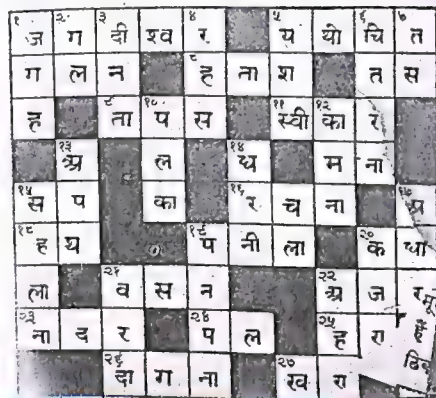 १ज २ग ३दी श्व ४र ५य थो ६चि ७त
ग ल न ८ह ता श त स
ह ९ता १०प स ११स्वी १२का र
१३अ ल १४ध म ना
१५स प का १६र च ना १७प
१८ह य १९प नी ला २०क था
ला २१व स न २२अ ज र
२३ना द र २४प ल २५ह रा
२६दा ग ना २७ख रा